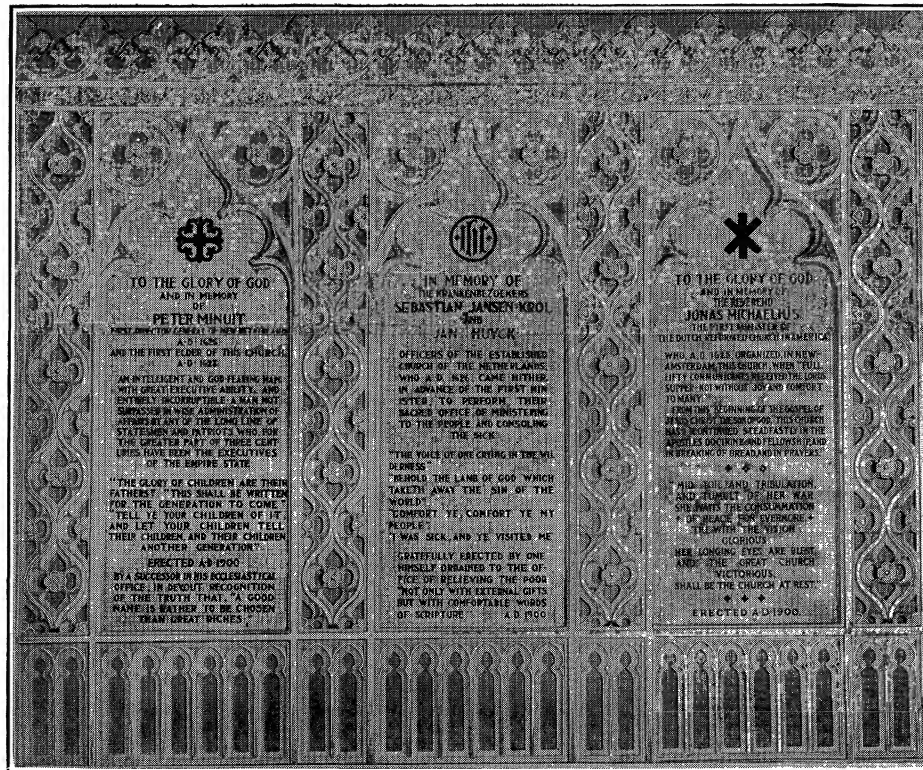 TO THE GLORY OF GOD
AND IN MEMORY
OF
PETER MINUIT
FIRST DIRECTOR GENERAL OF NEW NETHERLAND
A·D 1626
AND THE FIRST ELDER OF THIS CHURCH
A·D 1628
AN INTELLIGENT AND GOD FEARING MAN
WITH GREAT EXECUTIVE ABILITY, AND
ENTIRELY INCORRUPTIBLE: A MAN NOT
SURPASSED IN WISE ADMINISTRATION OF
AFFAIRS BY ANY OF THE LONG LINE OF
STATESMEN AND PATRIOTS WHO FOR
THE GREATER PART OF THREE CENT
URIES HAVE BEEN THE EXECUTIVES
OF THE EMPIRE STATE
"THE GLORY OF CHILDREN ARE THEIR
FATHERS". "THIS SHALL BE WRITTEN
FOR THE GENERATION TO COME"
"TELL YE YOUR CHILDREN OF IT,
AND LET YOUR CHILDREN TELL
THEIR CHILDREN, AND THEIR CHILDREN
ANOTHER GENERATION".
ERECTED A·D 1900
BY A SUCCESSOR IN HIS ECCLESIASTICAL
OFFICE; IN DEVOUT RECOGNITION
OF THE TRUTH THAT, "A GOOD
NAME IS RATHER TO BE CHOSEN
THAN GREAT RICHES"
IHS
IN MEMORY OF
THE KRANKENBEZOEKERS
SEBASTIAN JANSEN KROL
AND
JAN HUYCK
OFFICERS OF THE ESTABLISHED
CHURCH OF THE NETHERLANDS,
WHO A·D 1626, CAME HITHER,
IN ADVANCE OF THE FIRST MIN
ISTER, TO PERFORM THEIR
SACRED OFFICE OF MINISTERING
TO THE PEOPLE AND CONSOLING
THE SICK
"THE VOICE OF ONE CRYING IN THE WIL
DERNESS"
"BEHOLD THE LAMB OF GOD WHICH
TAKETH AWAY THE SIN OF THE
WORLD"
"COMFORT YE, COMFORT YE MY
PEOPLE"
"I WAS SICK, AND YE VISITED ME"
GRATEFULLY ERECTED BY ONE
HIMSELF ORDAINED TO THE OF-
FICE OF RELIEVING THE POOR
"NOT ONLY WITH EXTERNAL GIFTS
BUT WITH COMFORTABLE WORDS
OF SCRIPTURE" A·D 1900
TO THE GLORY OF GOD
AND IN MEMORY OF
THE REVEREND
JONAS MICHAELIUS
THE FIRST MINISTER OF
THE DUTCH REFORMED CHURCH IN AMERICA
WHO, A·D 1628, ORGANIZED, IN NEW-
AMSTERDAM, THIS CHURCH, WHEN "FULL
FIFTY COMMUNICANTS RECEIVED THE LORDS
SUPPER - NOT WITHOUT JOY AND COMFORT
TO MANY."
FROM THIS "BEGINNING OF THE GOSPEL OF
JESUS CHRIST, THE SON OF GOD," THIS CHURCH
HAS "CONTINUED STEADFASTLY IN THE
APOSTLES DOCTRINE AND FELLOWSHIP, AND
IN BREAKING OF BREAD, AND IN PRAYERS."
"MID TOIL AND TRIBULATION
AND TUMULT OF HER WAR
SHE WAITS THE CONSUMMATION
OF PEACE FOR EVERMORE
TILL WITH THE VISION
GLORIOUS
HER LONGING EYES ARE BLEST
AND THE GREAT CHURCH
VICTORIOUS
SHALL BE THE CHURCH AT REST"
ERECTED A·D·1900